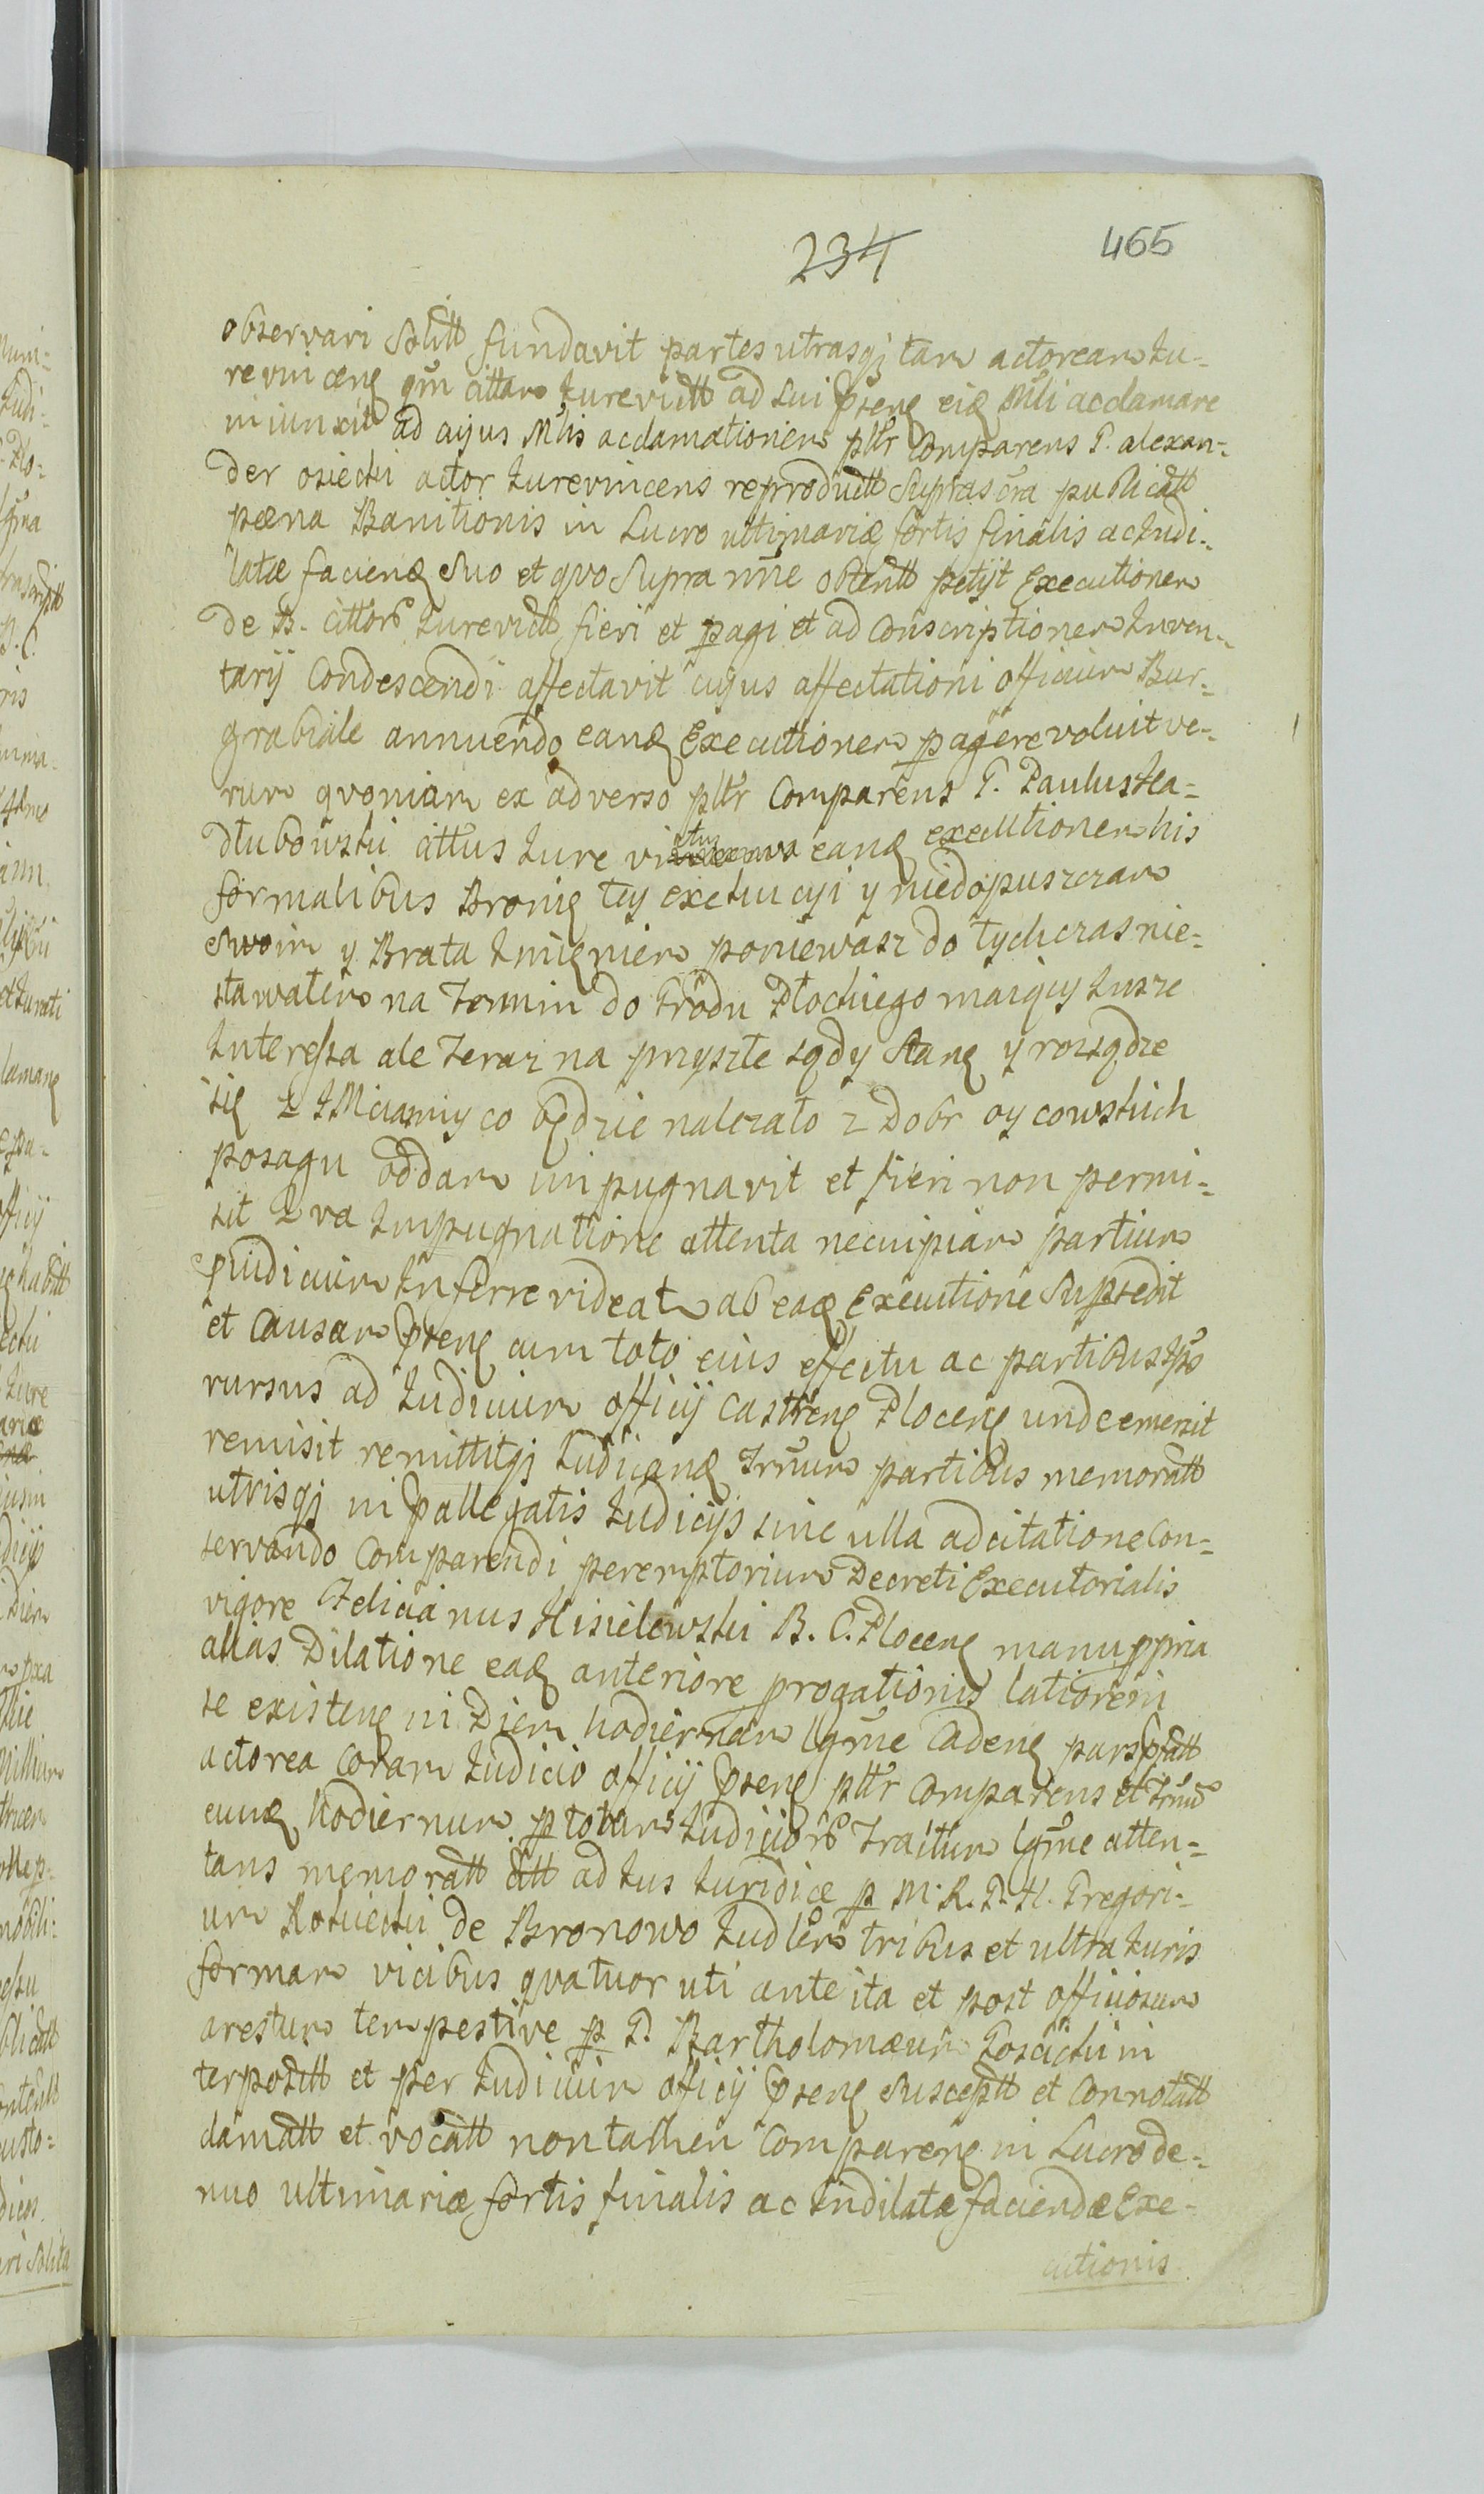 234 465
observari Solitt fundavit partes utrasq; tam actoream Ju-
revincenę qm̃ cittam Jurevictt ad sui pñsenę eię Mlĩ acclamare
iniunxit ad cujus Mlĩs acclamationem pltr Comparens G. alexan-
der osiecki actor Jurevincens reproductt Suprascra publicatt
pæna Banitionis in Lucro ultimariæ fortis finalis ac Indi-
latæ faciendę suo et qvo Supra nñe obtentt petijt Executionem
de B. cittorũ Jurevictt fieri et pagi et ad Conscriptionem Inven-
tarij Condescendi affectavit cujus affectationi officium Bur-
grabiale annuendo eandę Executionem pagere voluit ve-
rum qvoniam ex adverso pltr Comparens G. Paulus Na-
dłubowski cittus Jure victus eandę executionem his
formalibus Bronię tey exekucyi y niedopuszczam
swoim y Brata Imieniem poniewasz do tych czas nie-
stawałem na Termin do Grodu Płockiego maiący Insze
Interessa ale Teraz na przyszłe sądy Stanę y rozsądzę
się z IMciamy co będzie nalezało z Dobr oycowskich
posagu oddam impugnavit et fieri non permi-
sit Qva Impugnatione attenta necuipiam partium
pjudicium Inferre videatur ab eadę Executione Supsedit
et Causam pñsenę cum toto eius effectu ac partibus Ips̃
rursus ad Judicium officij castrenę Plocenę unde emersit
remisit remittitq; Judicandę Trm̃um partibus memoratt
utrisq; in pallegatis Judicijs sine ulla adcitatione Con-
servando Comparendi peremptorium Decreti Executorialis
vigore Felicianus Kisielewski B. C. Plocenę manu ppria
alias Dilatione eadę anteriore prrogationis latiorem
se existenę in Diem hodiernam lgm̃e Cadenę pars pfatt
actorea coram Judicio officij pñsenę pltr Comparens et Trm̃ũ
eundę hodiernum p totum Judiciorũ Tractum lgm̃e atten-
tans memoratt citt ad Jus Juridice p M. R. P. N. Gregori-
um Rokicki de Bronowo Judlem̃ tribus et ultra Juris
formam vicibus qvatuor uti ante ita et post officiosum
arestum tempestive p G. Bartholomæum Gościcki in
terpositt et per Judicium oficij pñsenę susceptt et Connotatt
clamatt et vocatt non tamen Comparenę in Lucro de-
nuo ultimariæ fortis finalis ac Indilatæ faciendæ Exe-
cutionis